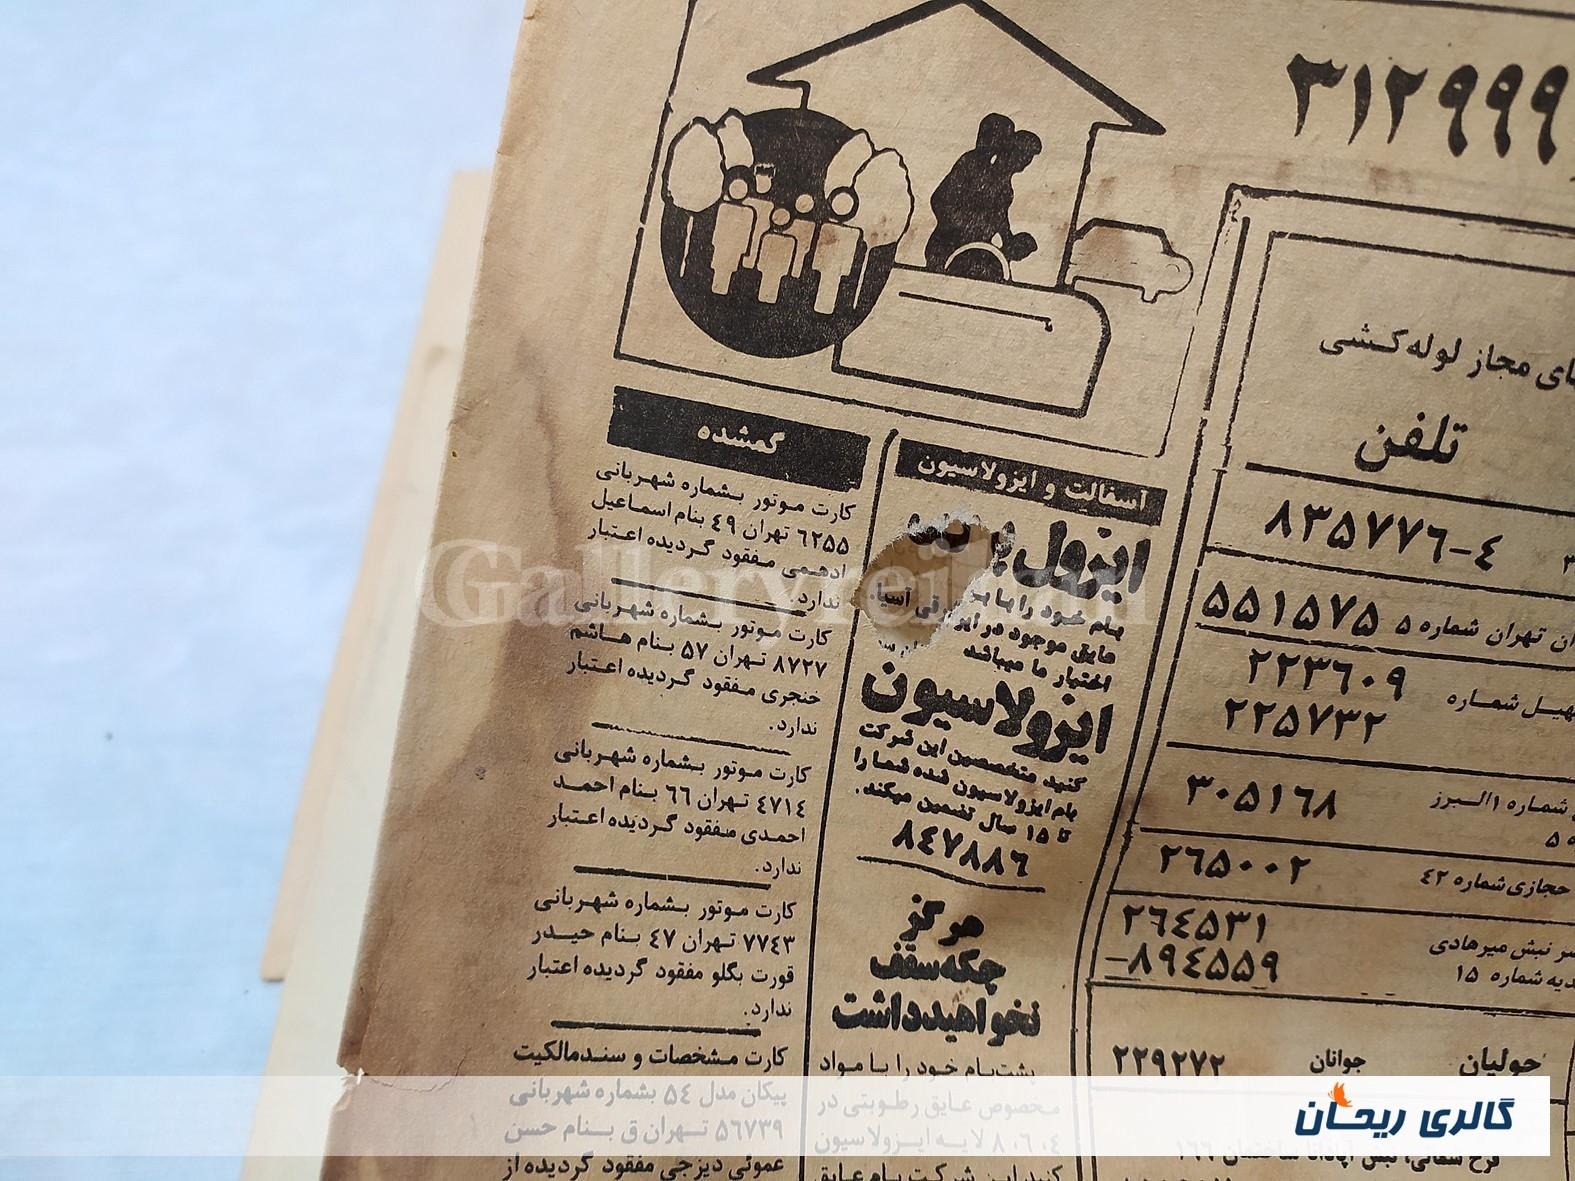 ۳۱۲۹۹۹
مجاز لوله‌کشی
تلفن
۸۳۵۷۷۶-٤
تهران شماره ۵ ۵۵۱۵۷۵
شماره ۲۲۳۶۰۹
۲۲۵۷۳۲
شماره ۱ البرز ۳۰۵۱۶۸
۵
حجازی شماره ۴۲ ۲۶۵۰۰۲
۲۶٤۵۳۱
نبش میرهادی
شماره ۱۵ ۸۹٤۵۵۹-
حولیان جوانان ۲۲۹۲۷۲
آسفالت و ایزولاسیون
ایزول
بام خود را با
عایق موجود در
اختیار ما میباشد
ایزولاسیون
کنید متخصصین این شرکت
بام ایزولاسیون شده شما را
تا ۱۵ سال تضمین میکند.
۸٤۷۸۸٦
مرکز
چکه سقف
نخواهید داشت
پشت‌بام خود را با مواد
مخصوص عایق رطوبتی در
۴، ۶، ۸ لایه ایزولاسیون
کنید این شرکت بام عایق
گمشده
کارت موتور بشماره شهربانی
۶۲۵۵ تهران ۴۹ بنام اسماعیل
ادهمی مفقود گردیده اعتبار
ندارد.
کارت موتور بشماره شهربانی
۸۷۲۷ تهران ۵۷ بنام هاشم
خنجری مفقود گردیده اعتبار
ندارد.
کارت موتور بشماره شهربانی
٤۷۱٤ تهران ۶۶ بنام احمد
احمدی مفقود گردیده اعتبار
ندارد.
کارت موتور بشماره شهربانی
۷۷٤۳ تهران ۴۷ بنام حیدر
قورت بگلو مفقود گردیده اعتبار
ندارد.
کارت مشخصات و سند مالکیت
پیکان مدل ۵۴ بشماره شهربانی
۵۶۷۳۹ تهران ق بنام حسن
عموئی دیزجی مفقود گردیده از
Galleryreihan
گالری ریحان